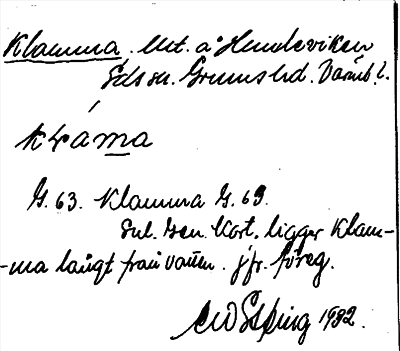 Klamma. Utt. å Hundeviken
Eds sn. Grums hd. Värmb. l.
kláma
G. 63. Klamma G. 69.
Enl. Gen. Kort. ligger Klam-
-ma långt från vatten. jfr. föreg.
1932.